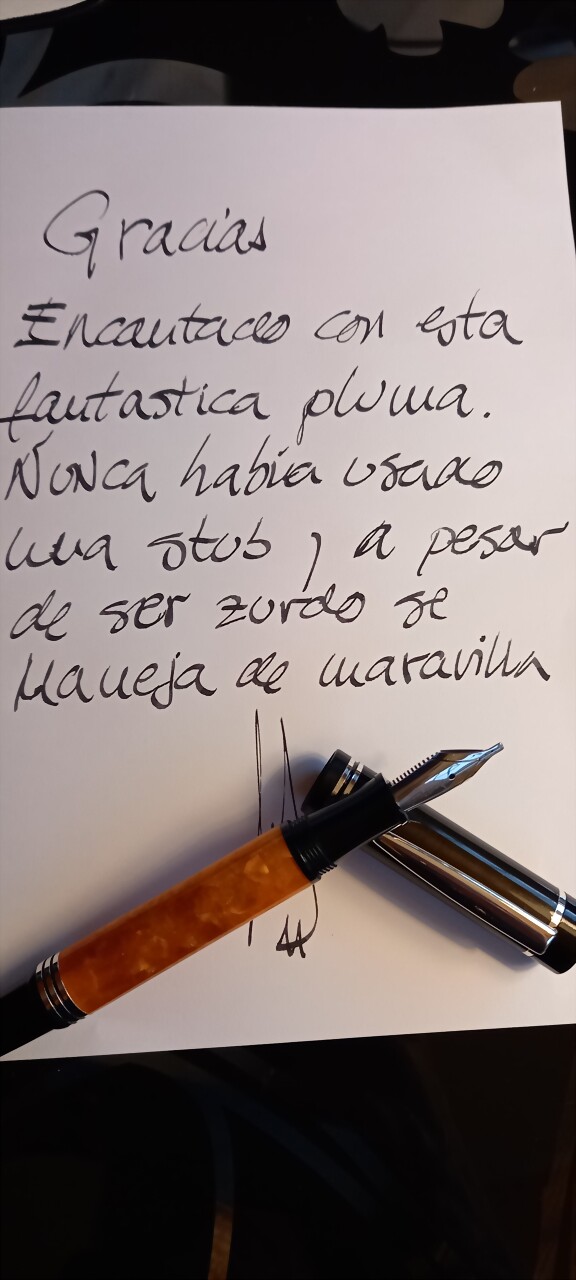 Gracias
Encantado con esta
fantastica pluma.
Nunca había usado
una stub, a pesar
de ser zurdo se
Maneja de maravilla